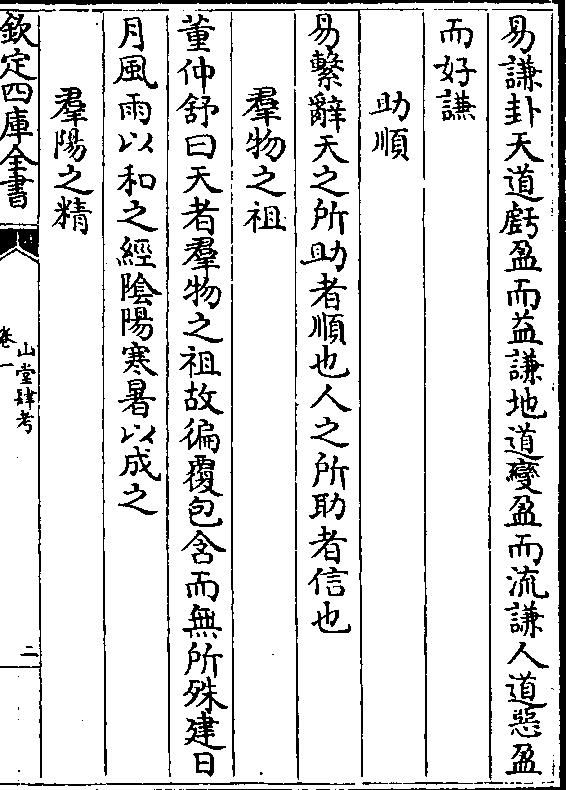 易謙卦天道虧盈而益謙地道變盈而流謙人道惡盈
而好謙
助順
易繫辭天之所助者順也人之所助者信也
羣物之祖
董仲舒曰天者羣物之祖故徧覆包含而無所殊建日
月風雨以和之經陰陽寒暑以成之
羣陽之精
欽定四庫全書
山堂肆考
卷一
二